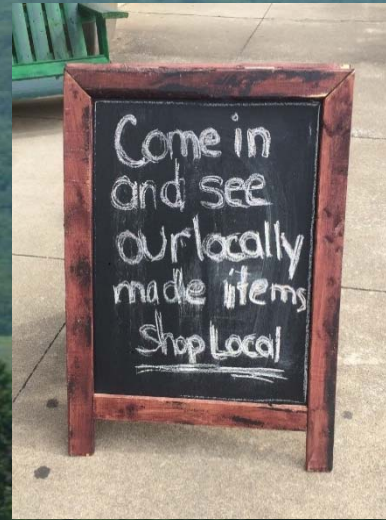 Come in
and see
our locally
made items
Shop Local